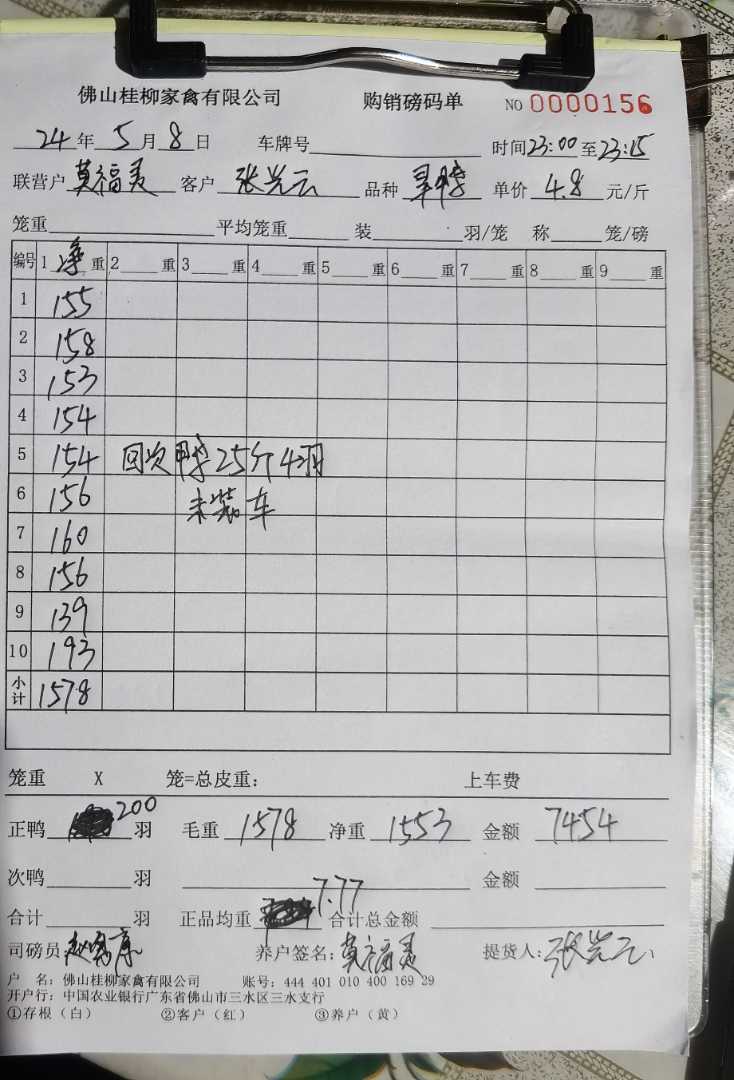 佛山桂柳家禽有限公司 购销磅码单 NO 0000156
24 年 5 月 8 日 车牌号 时间 23:00 至 23:15
联营户 莫福灵 客户 张兴云 品种 单价 4.8 元/斤
笼重 平均笼重 装 羽/笼 称 笼/磅
编号 1 净 重 2 重 3 重 4 重 5 重 6 重 7 重 8 重 9 重
1 155
2 158
3 153
4 154
5 154 回次鸭25斤4羽
6 156 未装车
7 160
8 156
9 139
10 193
小计 1578
笼重 X 笼=总皮重: 上车费
正鸭 200 羽 毛重 1578 净重 1553 金额 7454
次鸭 羽 金额
合计 羽 正品均重 7.77 合计总金额
司磅员: 养户签名: 莫福灵 提货人: 张兴云
户 名: 佛山桂柳家禽有限公司 账号: 444 401 010 400 169 29
开户行: 中国农业银行广东省佛山市三水区三水支行
①存根(白) ②客户(红) ③养户(黄)